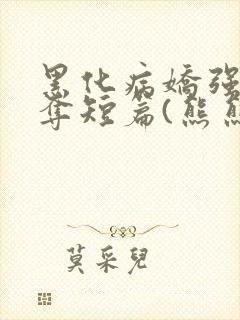 黑化病嬌强
奪短篇(熊熊
莫采兒